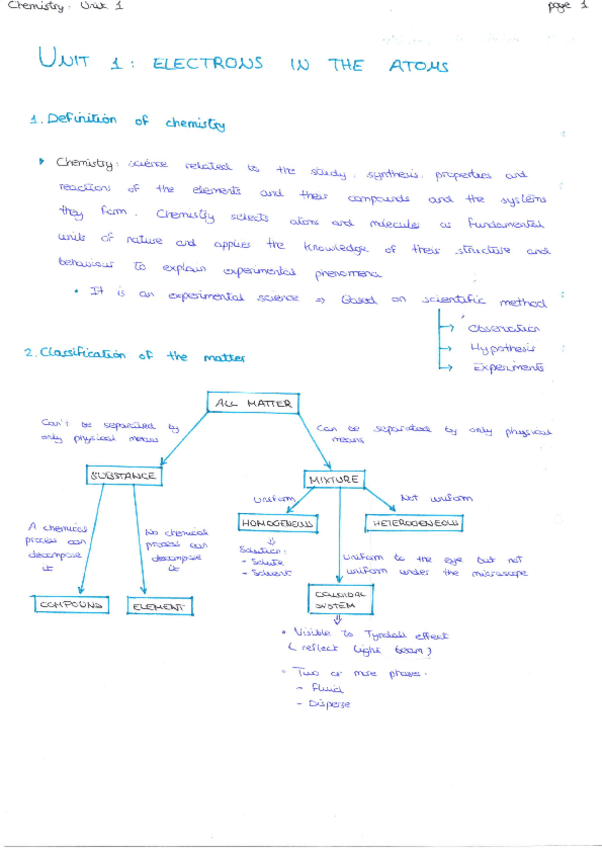 Chemistry. Unit 1
page 1
UNIT 1: ELECTRONS IN THE ATOMS
1. Definition of chemistry
Chemistry: science related to the study, synthesis, properties and
reactions of the elements and their compounds and the systems
they form. Chemistry selects atoms and molecules as fundamental
units of nature and applies the knowledge of their structure and
behaviour to explain experimental phenomena
• It is an experimental science ⇒ Based on scientific method
→ Observation
→ Hypothesis
→ Experiments
2. Classification of the matter
ALL MATTER
Can't be separated by
only physical means
Can be separated by only physical
means
SUBSTANCE
MIXTURE
Uniform
Not uniform
A chemical
process can
decompose
it
No chemical
process can
decompose
it
HOMOGENEOUS
HETEROGENEOUS
Solution:
- Solute
- Solvent
Uniform to the eye but not
uniform under the microscope
COMPOUND
ELEMENT
COLLOIDAL
SYSTEM
• Visible to Tyndall effect
(reflect light beam)
• Two or more phases.
- Fluid
- Disperse